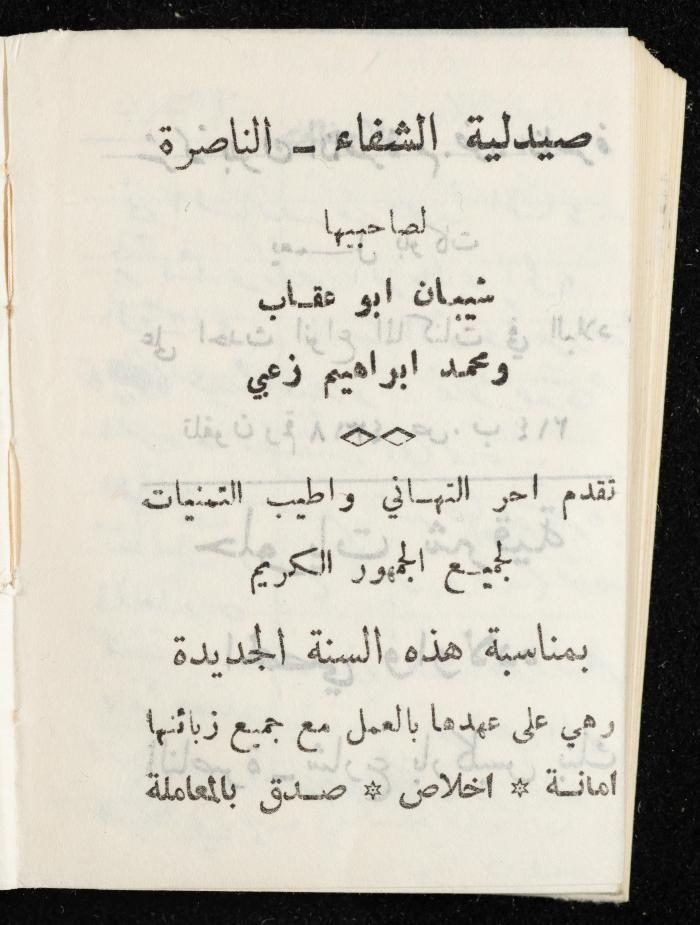 صيدلية الشفاء ـ الناصرة
لصاحبيها
شيبان ابو عقاب
ومحمد ابراهيم زعبي
تقدم احر التهاني واطيب التمنيات
لجميع الجمهور الكريم
بمناسبة هذه السنة الجديدة
وهي على عهدها بالعمل مع جميع زبائنها
امانة * اخلاص * صدق بالمعاملة